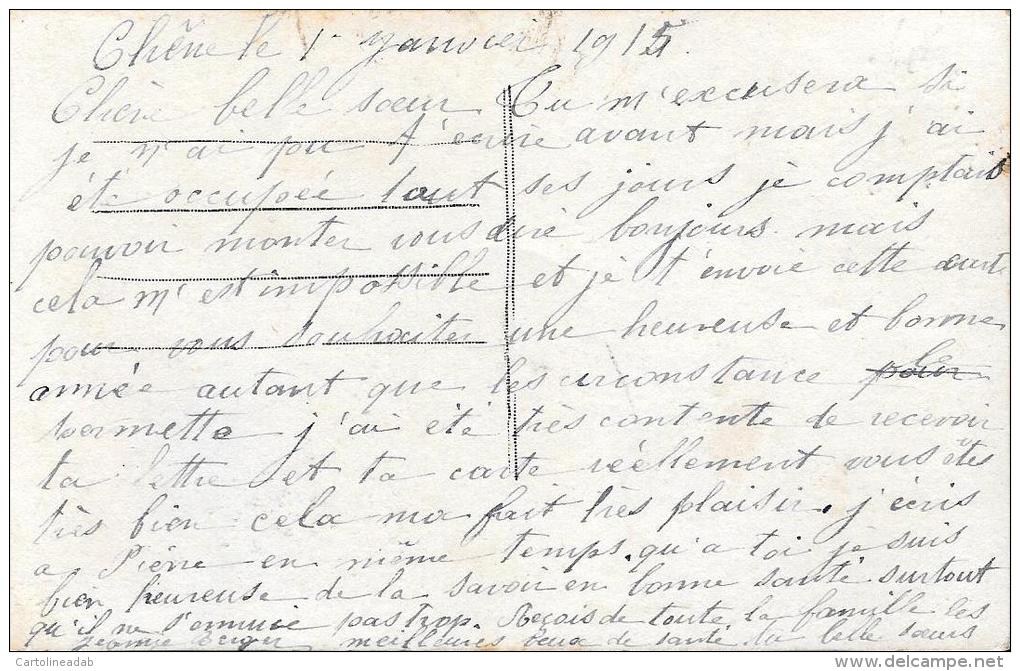 Chêne le 1r Janvier 1915.
Chère belle sœur Tu m'excusera si
je n'ai pu t'écrire avant mais j'ai
été occupée tout ses jours je comptais
pouvoir monter vous dire bonjours. mais
cela m'est impossible et je t'envoie cette carte
pour vous souhaiter une heureuse et bonne
année autant que les circonstance le
permette j'ai été très contente de recevoir
ta lettre et ta carte réellement vous êtes
très bien cela ma fait très plaisir. j'écris
a Pierre en même temps qu'a toi je suis
bien heureuse de la savoir en bonne santé surtout
qu'il ne s'ennuie pas trop. Reçois de toute la famille les
meilleures vœux de santé ta belle sœurs
Cartolineadab
delcampe.net